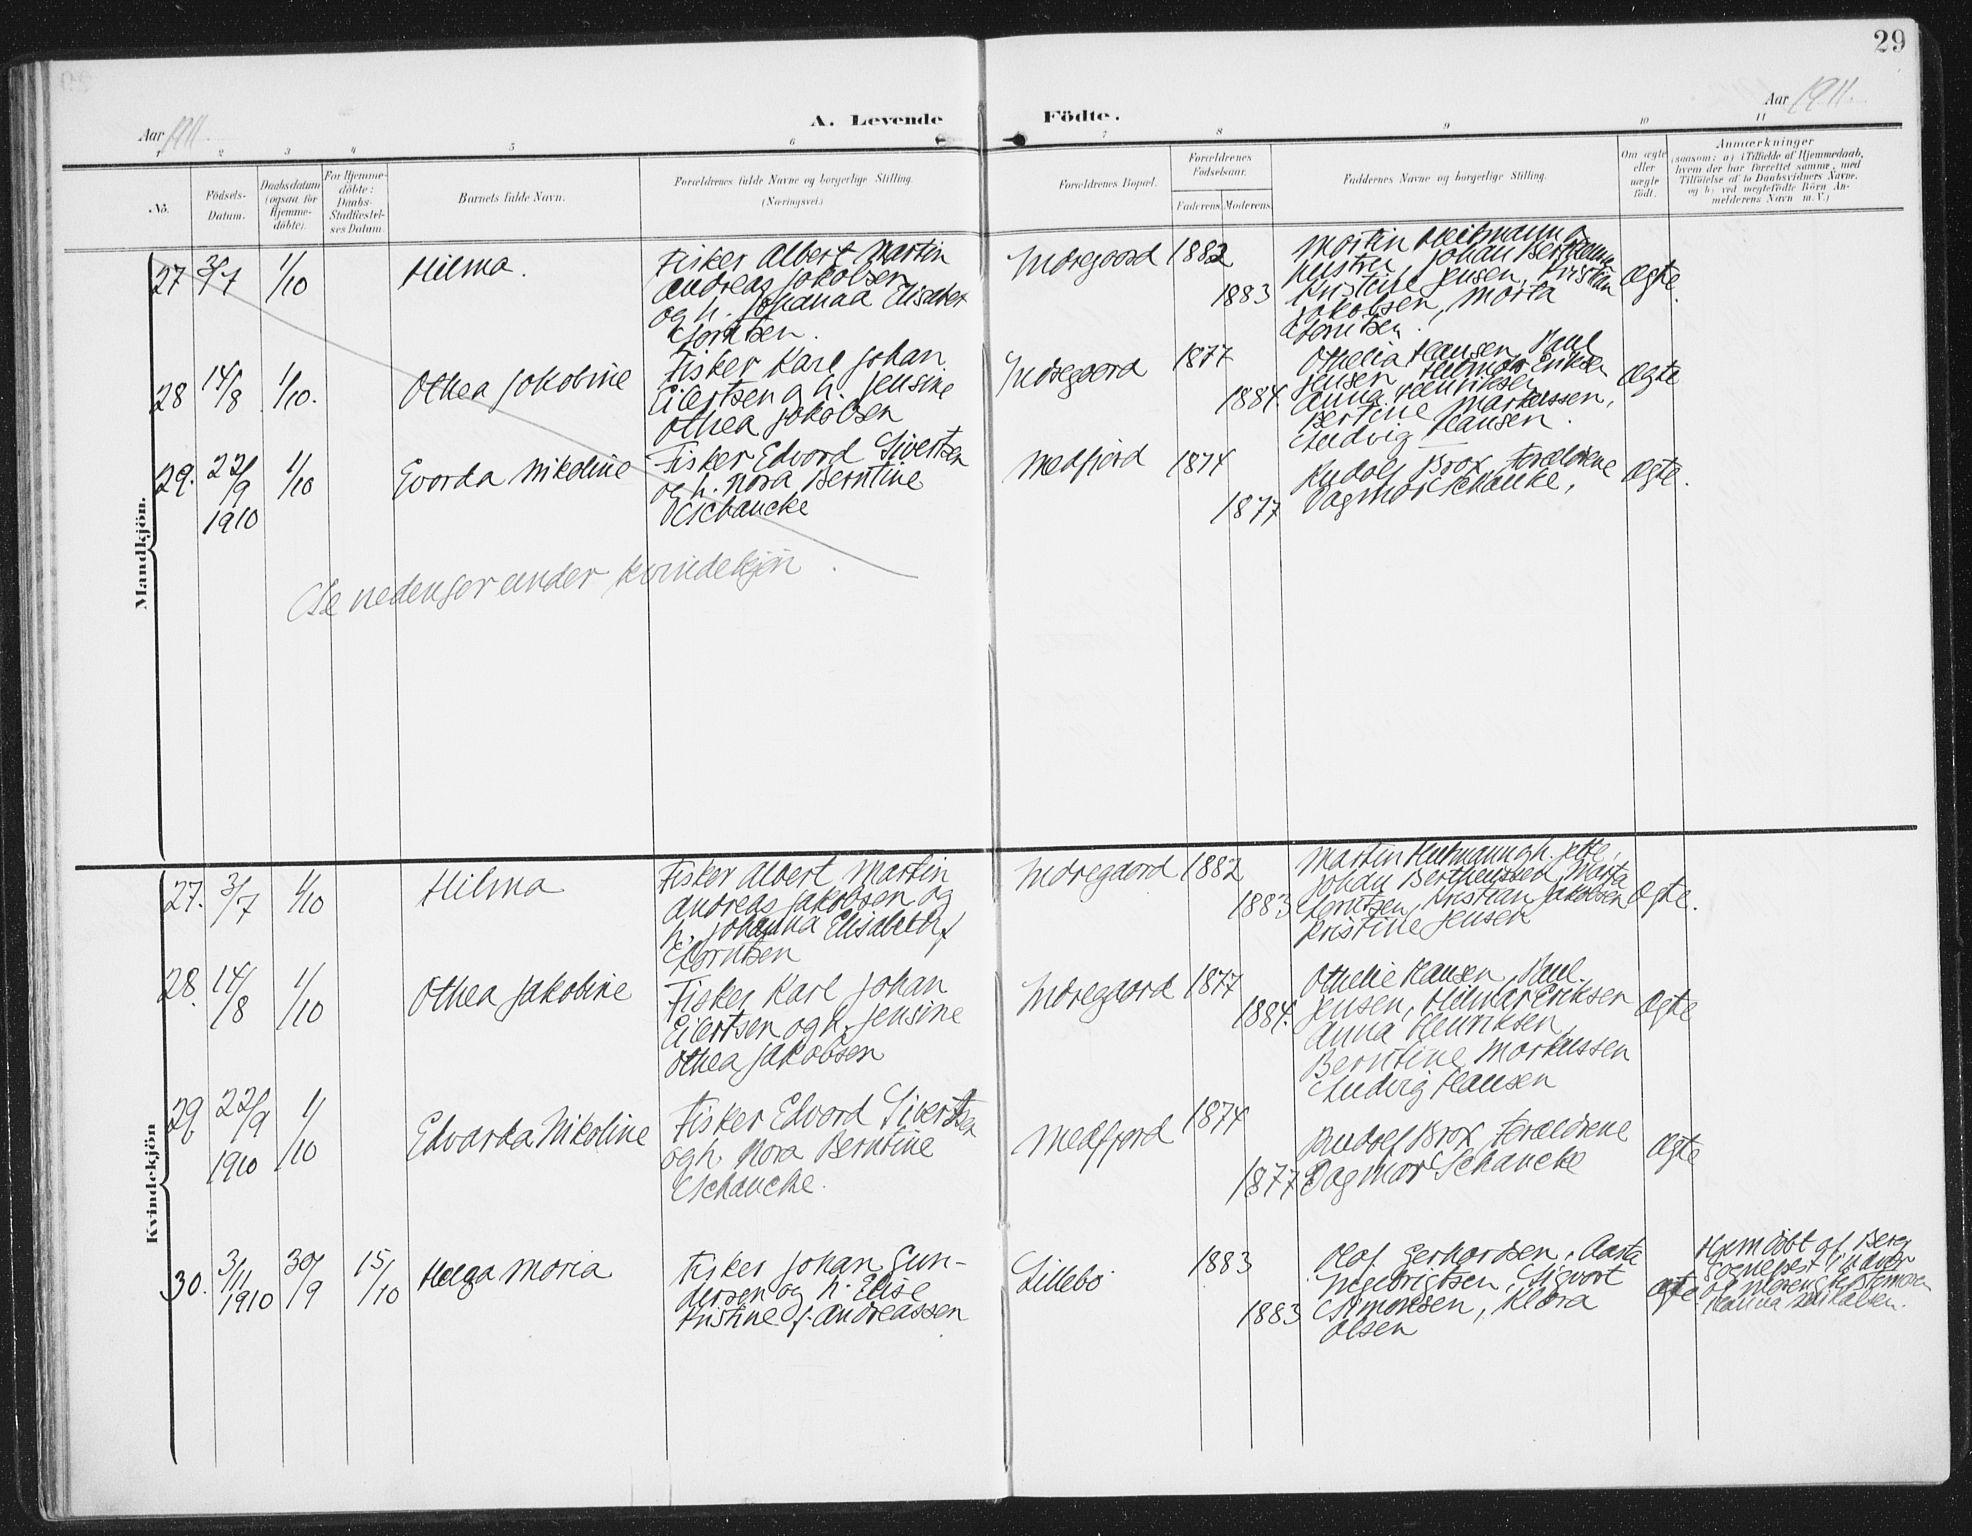 29
Aar 1911.
A. Levende
Födte.
Aar 1911.
1
2
3
4
5
6
7
8
9
10
11
No.
Födsels-
Datum.
Daabsdatum
(ogsaa for
Hjemme-
döbte).
For Hjemme-
döbte:
Daabs-
Stadfæstel-
ses Datum.
Barnets fulde Navn.
Forældrenes fulde Navne og borgerlige Stilling.
(Næringsvei.)
Forældrenes Bopæl.
Forældrenes
Födselsaar.
Faderens.
Moderens.
Faddernes Navne og borgerlige Stilling.
Om ægte
eller
uægte
födt.
Anmærkninger
(saasom: a) i Tilfælde af Hjemmedaab,
hvem der har forrettet samme, med
Tilföielse af to Daabsvidners Navne,
og b) ved uægtefödte Börn An-
melderens Navn m. V.)
Mandkjön.
27 3/7 1/10 Hilma.
Fisker Albert Martin
Andreas Jakobsen
og h. Johanna Elisabet
Lorntsen.
Indregaard 1882
1883
Martin
Hustru Johan
Kristine Jensen, Kristian
Jakobsen, Marta
Lorntsen.
Ægte.
28 14/8 1/10. Othea Jakobine
Fisker Karl Johan
Eilertsen og h. Jensine
Othea Jakobsen
Indregaard 1877
1884.
Othelia Hansen, Paul
Jensen Hilmar Eriksen
Anna Henriksen
Bertine Markussen,
Ludvig Hansen.
Ægte
29. 22/9 1910 1/10 Evarda Nikoline
Fisker Edvard Sivertsen
og h. Nora Berntine
Schancke
Medfjord 1874
1877
Rudolf Brox, Forældrene
Dagmar Schancke,
Ægte.
Se nedenfor under kvindekjön.
Kvindekjön
27. 3/7 1/10 Hilma
Fisker Albert Martin
Andreas Jakobsen og
h. Johanna Elisabeth f
Lorntsen
Indregaard 1882
1883
Martin
Johan Marta
Lorntsen, Kristian Jakobsen
Kristine Jensen
Ægte.
28. 14/8 1/10 Othea Jakobine
Fisker Karl Johan
Eilertsen og h. Jensine
Othea Jakobsen
Indregaard 1877
1884.
Othelie Hansen, Paul
Jensen, Hilmar Eriksen
Anna Henriksen
Berntine Markussen
Ludvig Hansen
Ægte
29 22/9 1910 1/10 Edvarda Nikoline
Fisker Edvard Sivertsen
og h. Nora Berntine
Schancke.
Medfjord 1874
1877
Rudolf Brox, Forældrene
Dagmar Schancke
Ægte
30. 3/11 1910 30/9 15/10 Helga Maria
Fisker Johan Gun-
dersen og h. Elise
Kristine f. Andreassen
Lillebö 1883
1883
Olaf Gerhardsen, Aasta
Ingebrigtsen, Sigvart
Simonsen, Klara
Olsen
ægte.
Hjemdöbt af Berg
Sogneprest
af
Hanna Mikalsen.